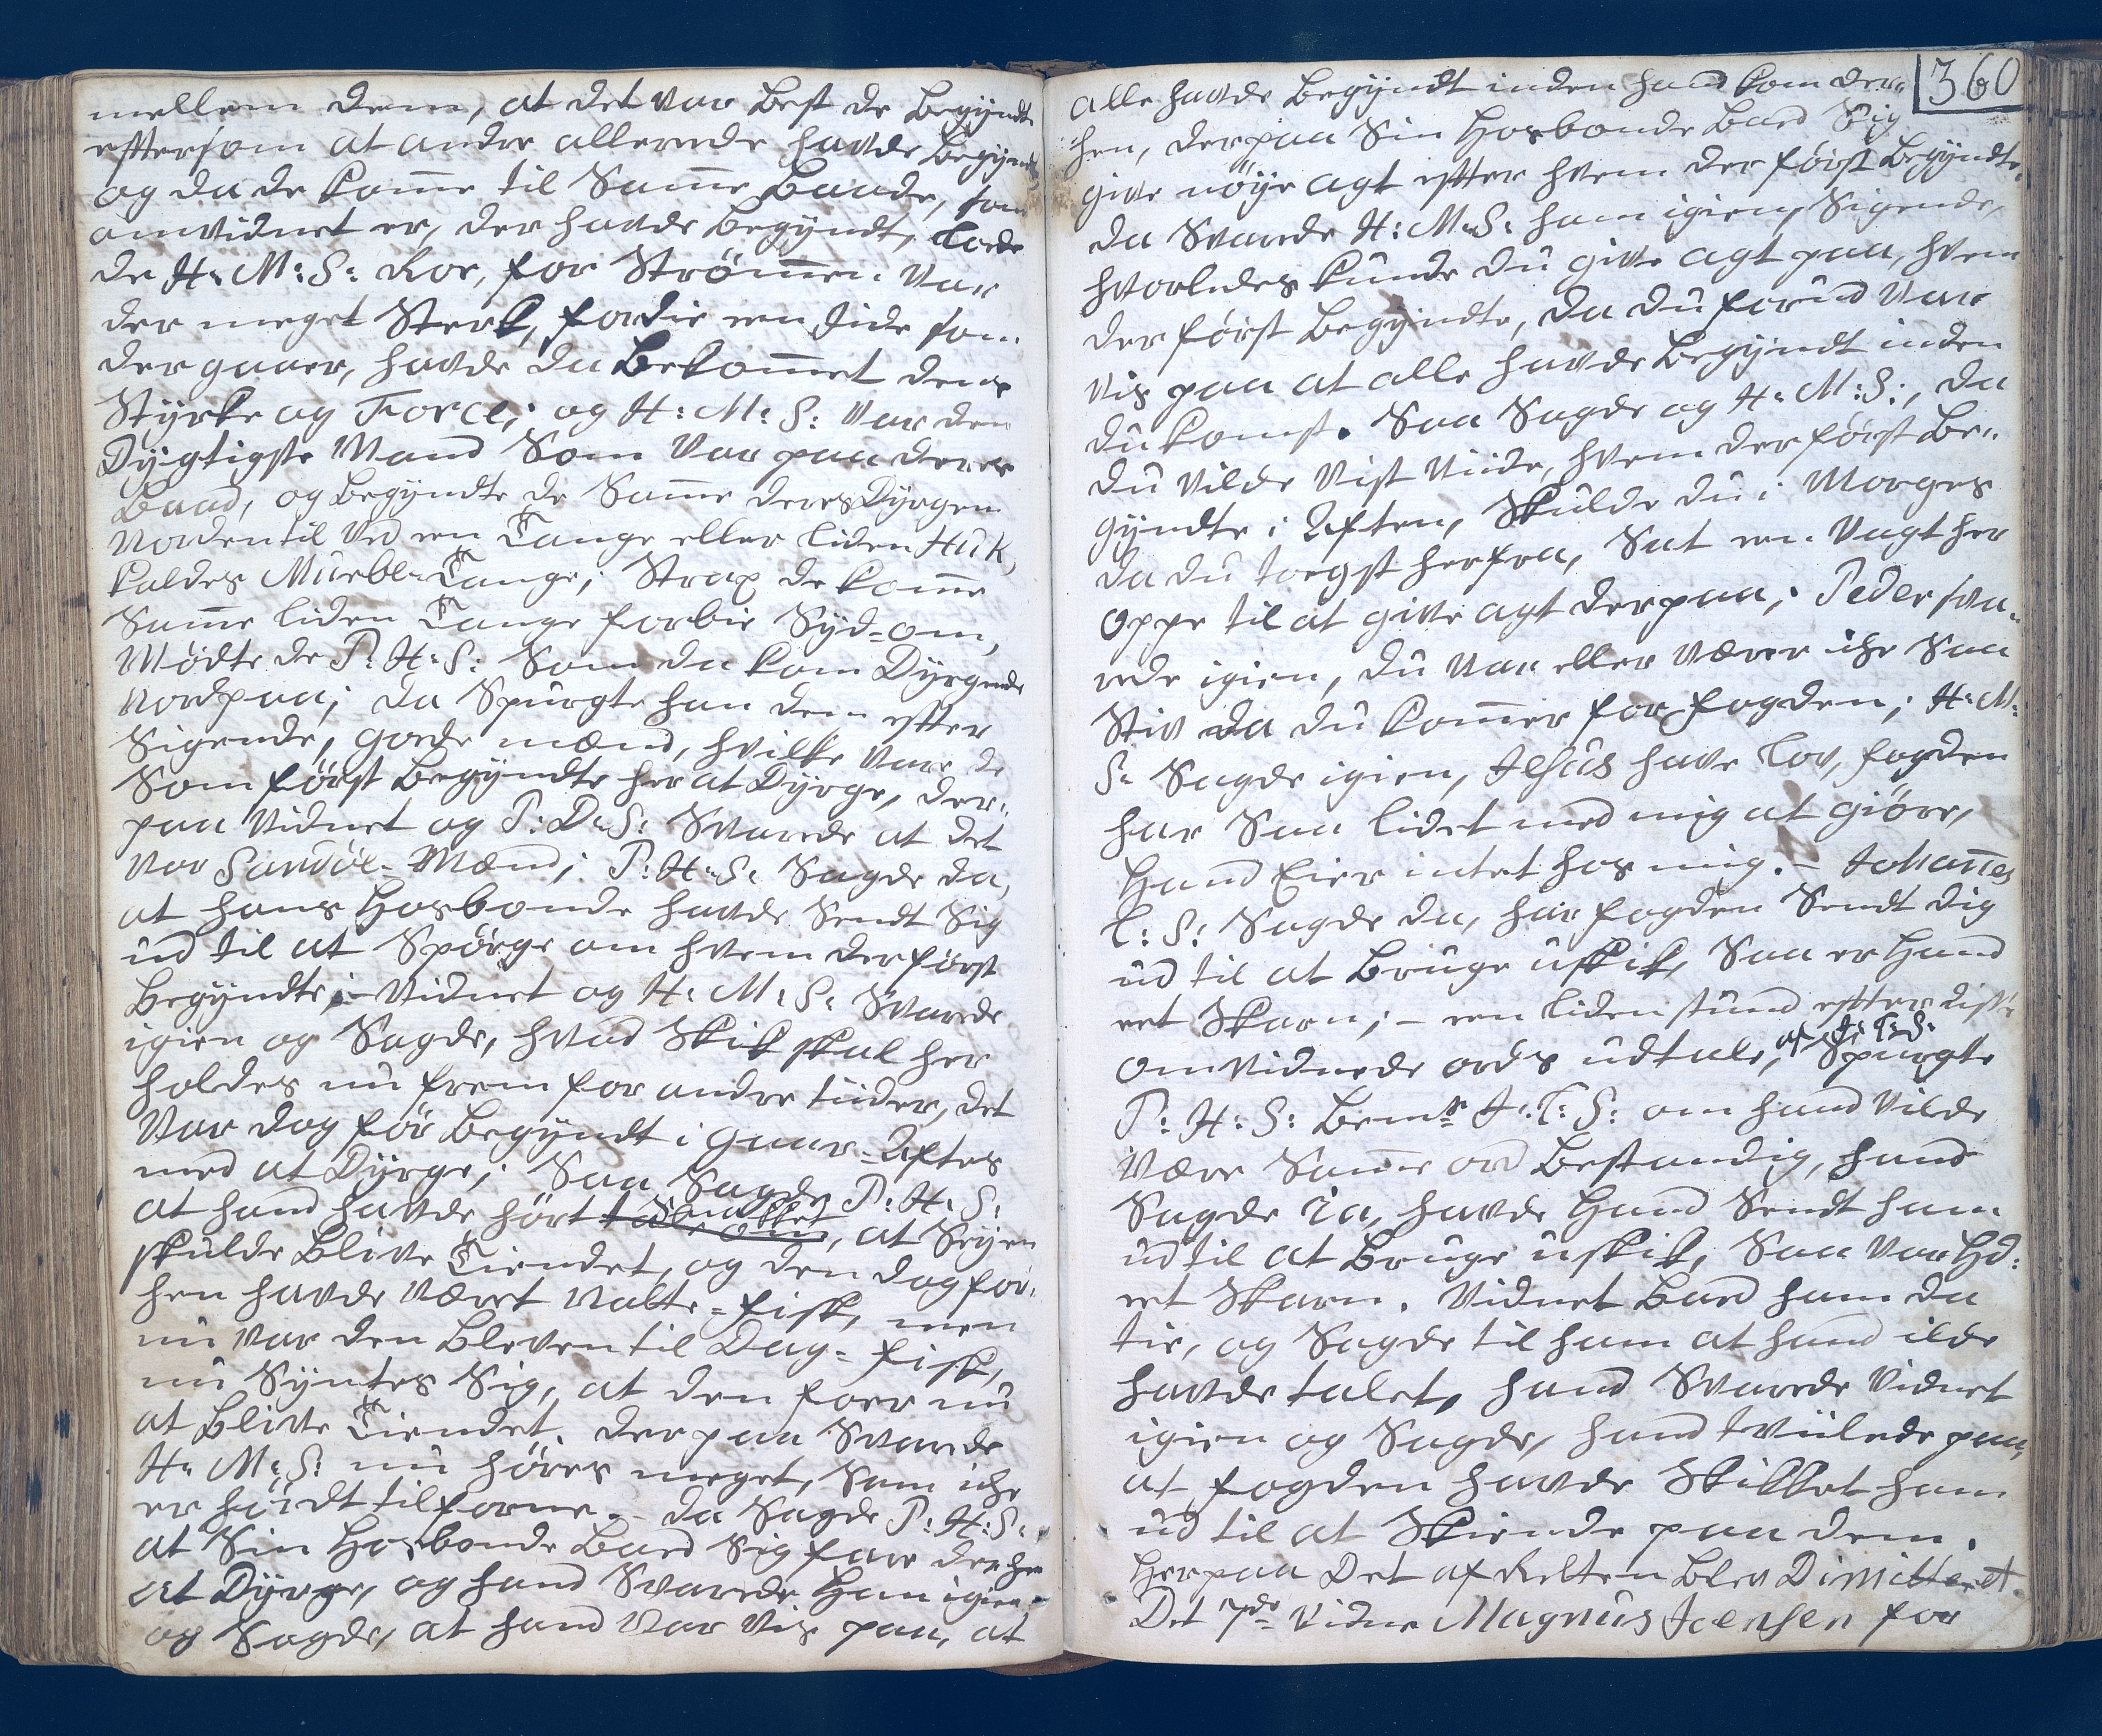 mellem dem, at det var best de begyndte
efftersom at andre allerede hafde begyndt,
og da de komme til Samme Baade, som
omvidnet er, der hafde begyndt, loede
de H: M: S: Roe, for Strömmen var
der meget Sterk, fordie een Iide som
der gaaer, hafde da bekommet dens
Styrke og Force; og H: M: S: var den
Dygtigste Mand Som var paa deres
Baad, og begyndte de Samme deres Dyrgen
Norden til ved een Tange eller liden Huk,
kaldes Mueble Tange; Strax de komme
Samme liden Tange forbie Syd-om,
Mödte de P: H: S: Som da kom Dyrgende
Nordpaa; da Spurgte han dem effter
Sigende, goede mænd, hvilke vare de
Som först begyndte her at Dyrge, der-
paa Vidnet og P: D: S: Svarede at det
var Sandöe-Mænd; P: H: S: Sagde da,
at hans Hosbonde hafde Sendt Sig
ud til at Spörge om hvem der först
begyndte; Vidnet og H: M: S: Svarede
igien og Sagde, hvad Skik skal her
holdes nu frem for andre tiider, det
var dog för begyndt i Gaar-Aftes
med at Dyrge; Saa Sagde P: H: S:
at hand hafde hört tale om, at Seyen
skulde blive Tiendet, og den dog for-
hen hafde været Natte-fisk, men
nu var den bleven til Dag-fisk,
nu Syntes Sig, at den foer nu
at blive Tiendet. derpaa Svarede
H: M: S: nu höres meget, Som iche
er hördt tilforne. da Sagde P: H: S:
at Sin Hosbonde bad Sig fare der hen
at Dyrge, og hand Svarede ham igien
og Sagde, at hand var vis paa, at
360
alle hafde begyndt inden hand kom der-
hen, derpaa Sin Hosbonde bad Sig
give nöye agt effter hvem der först begyndte,
da Svarede H: M: S: ham igien, Sigende,
hvorledes kunde du give agt paa, hvem
der först begyndte, da du forud var
vis paa at alle hafde begyndt inden
du komst. Saa Sagde og H: M: S:, da
du vilde vist viide, hvem der först be-
gyndte i Aften, Skulde du i Morges
da du toegst herfra, Sat een Vagt her
oppe til at give agt derpaa; Peder sva-
rede igien, du var eller værer iche Saa
Stiv da du kommer for fogden; H: M:
S: Sagde igien, Jesus have lov, fogden
har Saa lidet med mig at giöre,
Hand Eier intet hos mig. - Johannes
C: S: Sagde da, har fogden Sendt dig
ud til at bruge uskik, Saa er hand
eet Skarn; - een liden stund effter disse
omvidnede ords udtale, af J: C: S: Spurgte
P: H: S: bemte J: C: S: om hand vilde
være Samme ord bestandig, hand
Sagde Ja, hafde hand Sendt ham
ud til at bruge uskik, Saa var Hd:
et Skarn. Vidnet bad ham da
tie, og Sagde til ham at hand ilde
hafde talet, hand Svarede Vidnet
igien og Sagde, hand tviilede paa,
at fogden hafde Skikket ham
ud til at Skiende paa dem.
Herpaa Det af Retten blev Dimitteret.
Det 7de Vidne Magnus Joensen for